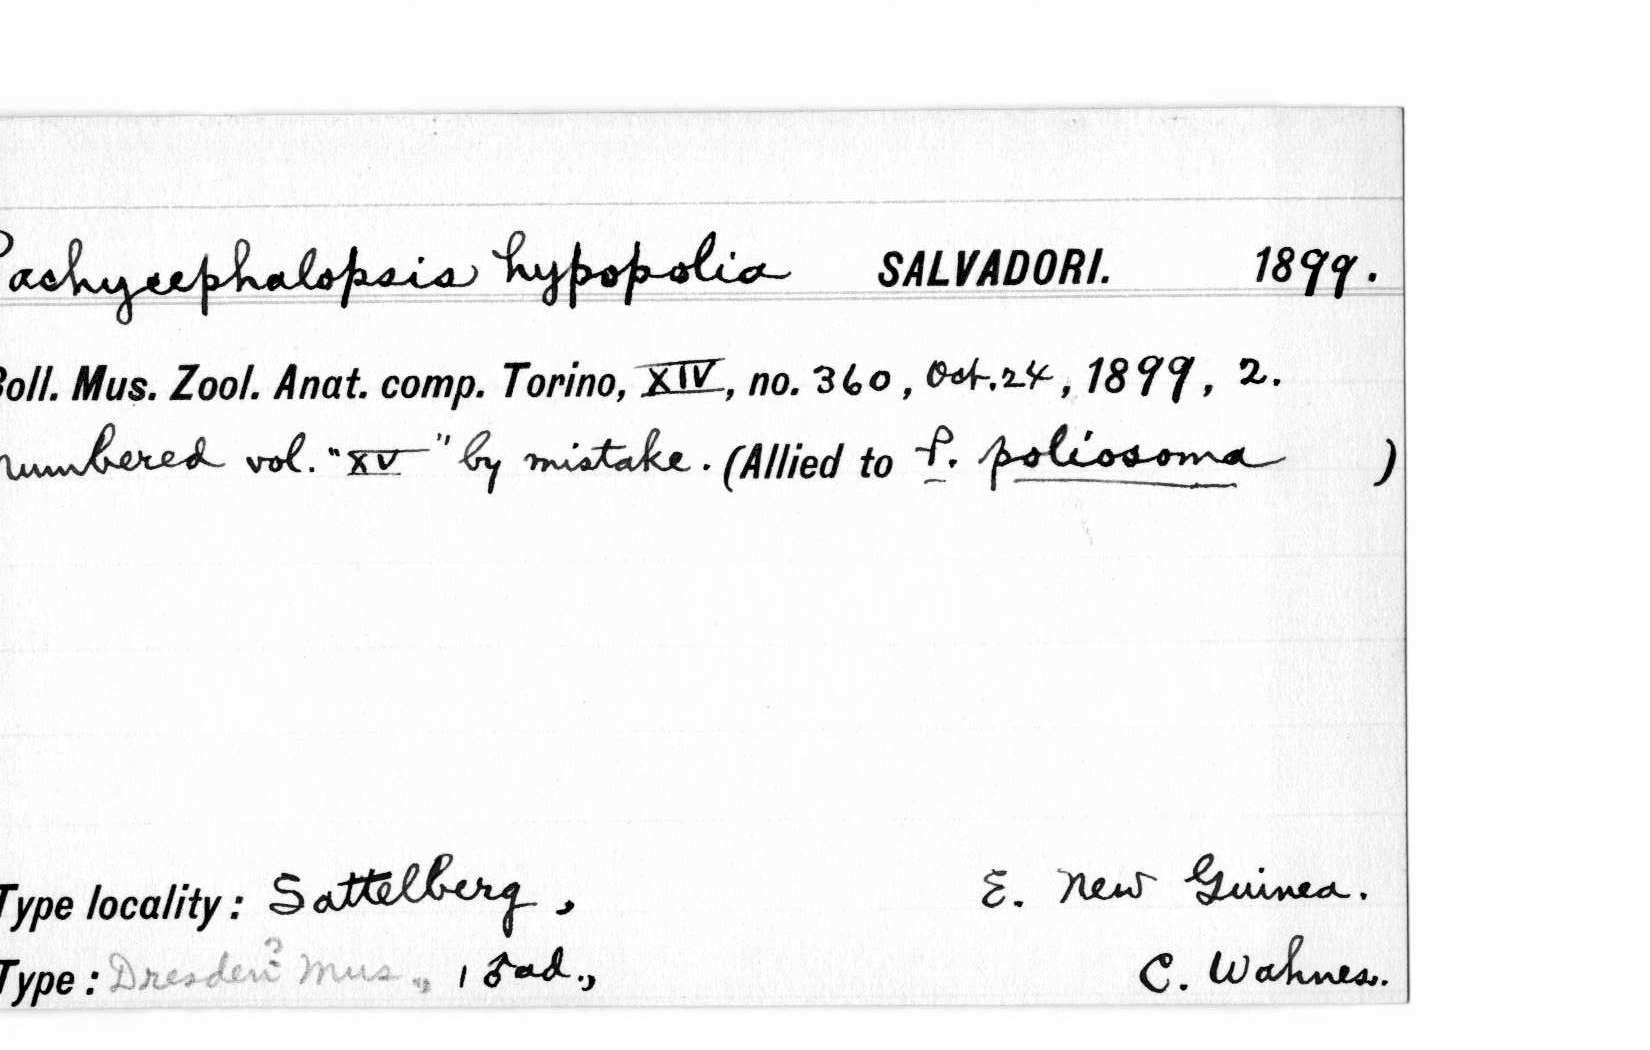 Pachycephalopsis hypopolia SALVADORI. 1899.
Boll. Mus. Zool. Anat. comp. Torino, XIV, no. 360, Oct. 24, 1899, 2.
numbered vol. "XV" by mistake. (Allied to P. poliosoma )
Type locality: Sattelberg, E. New Guinea.
Type: Dresden? Mus., 1 ♂ ad., C. Wahnes.